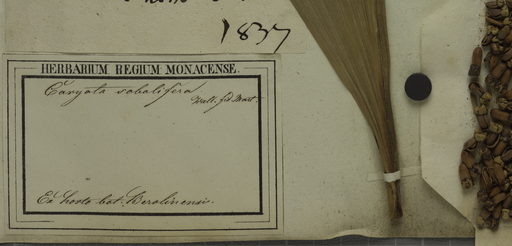 1837
HERBARIUM REGIUM MONACENSE.
Caryota sobolifera
Wall. fid Mart.
Ex horto bot. Berolinensis.